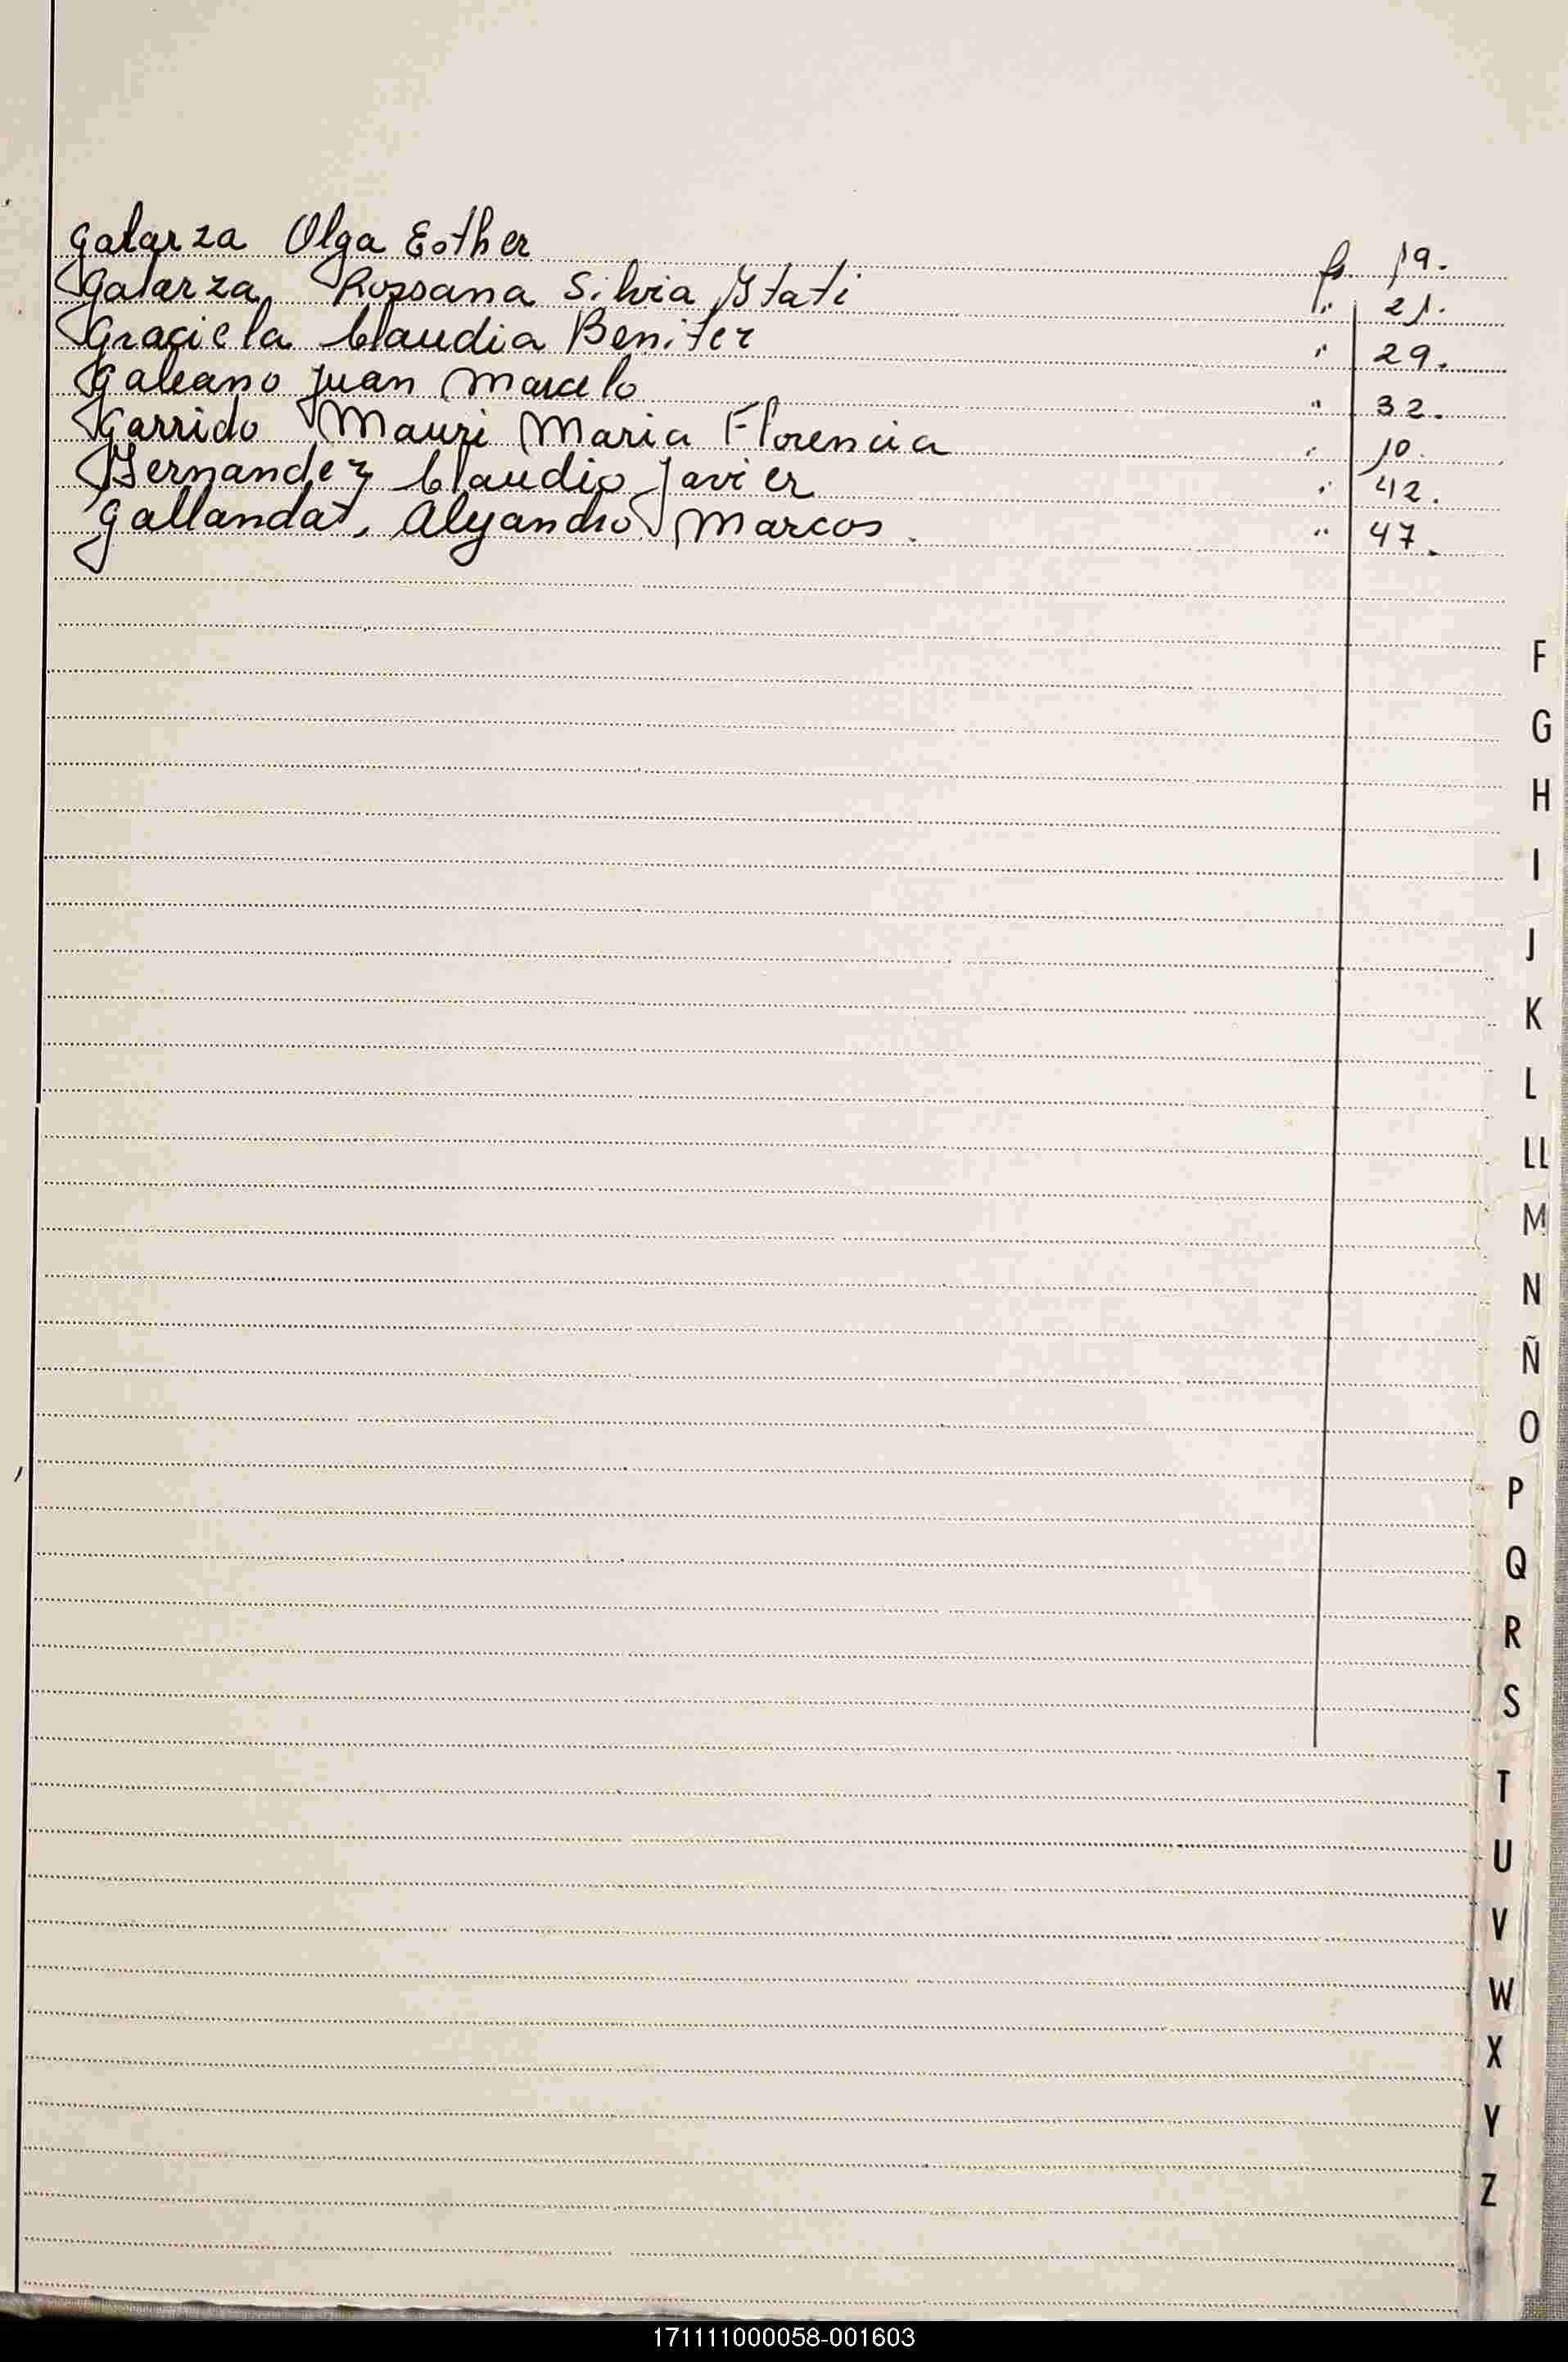 Galarza Olga Esther fs. 19.
Galarza, Rossana Silvia Itati " 21.
Graciela Claudia Benitez " 29.
Galeano Juan Marcelo " 32.
Garrido Mauri Maria Florencia " 10.
Gernandez Claudio Javier " 42.
Gallandat, Alejandro Marcos. " 47.
F
G
H
I
J
K
L
LL
M
N
Ñ
O
P
Q
R
S
T
U
V
W
X
Y
Z
171111000058-001603